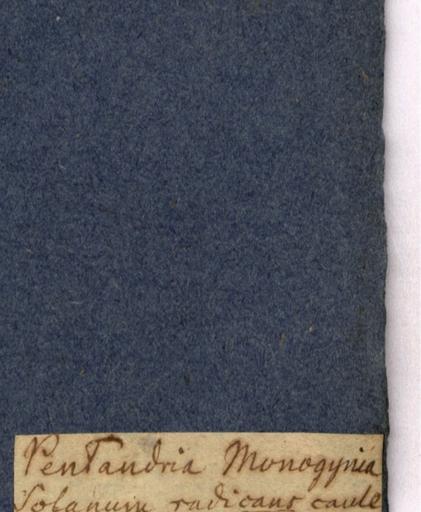 Pentandria Monogynia
Solanum radicans caule